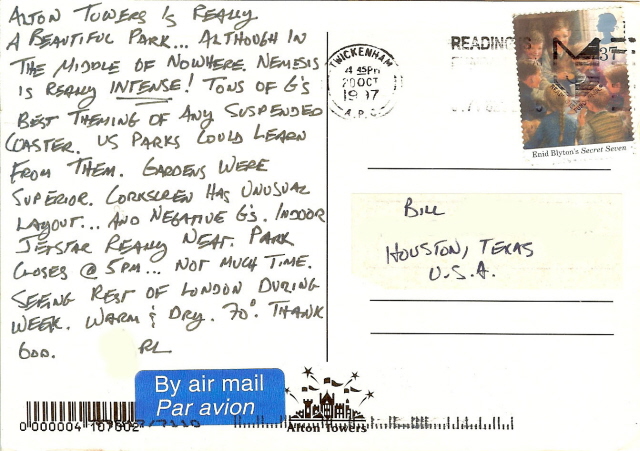 ALTON TOWERS IS REALLY
A BEAUTIFUL PARK... ALTHOUGH IN
THE MIDDLE OF NOWHERE. NEMESIS
IS REALLY INTENSE! TONS OF G'S
BEST THEMING OF ANY SUSPENDED
COASTER. US PARKS COULD LEARN
FROM THEM. GARDENS WERE
SUPERIOR. CORKSCREW HAS UNUSUAL
LAYOUT... AND NEGATIVE G'S. INDOOR
JETSTAR REALLY NEAT. PARK
CLOSES @ 5PM... NOT MUCH TIME.
SEEING REST OF LONDON DURING
WEEK. WARM & DRY. 70°. THANK
GOD. RL
TWICKENHAM
4 45PM
20 OCT
1997
READING
37
Enid Blyton's Secret Seven
BILL
HOUSTON, TEXAS
U.S.A.
By air mail
Par avion
Alton Towers
0 000004 167602